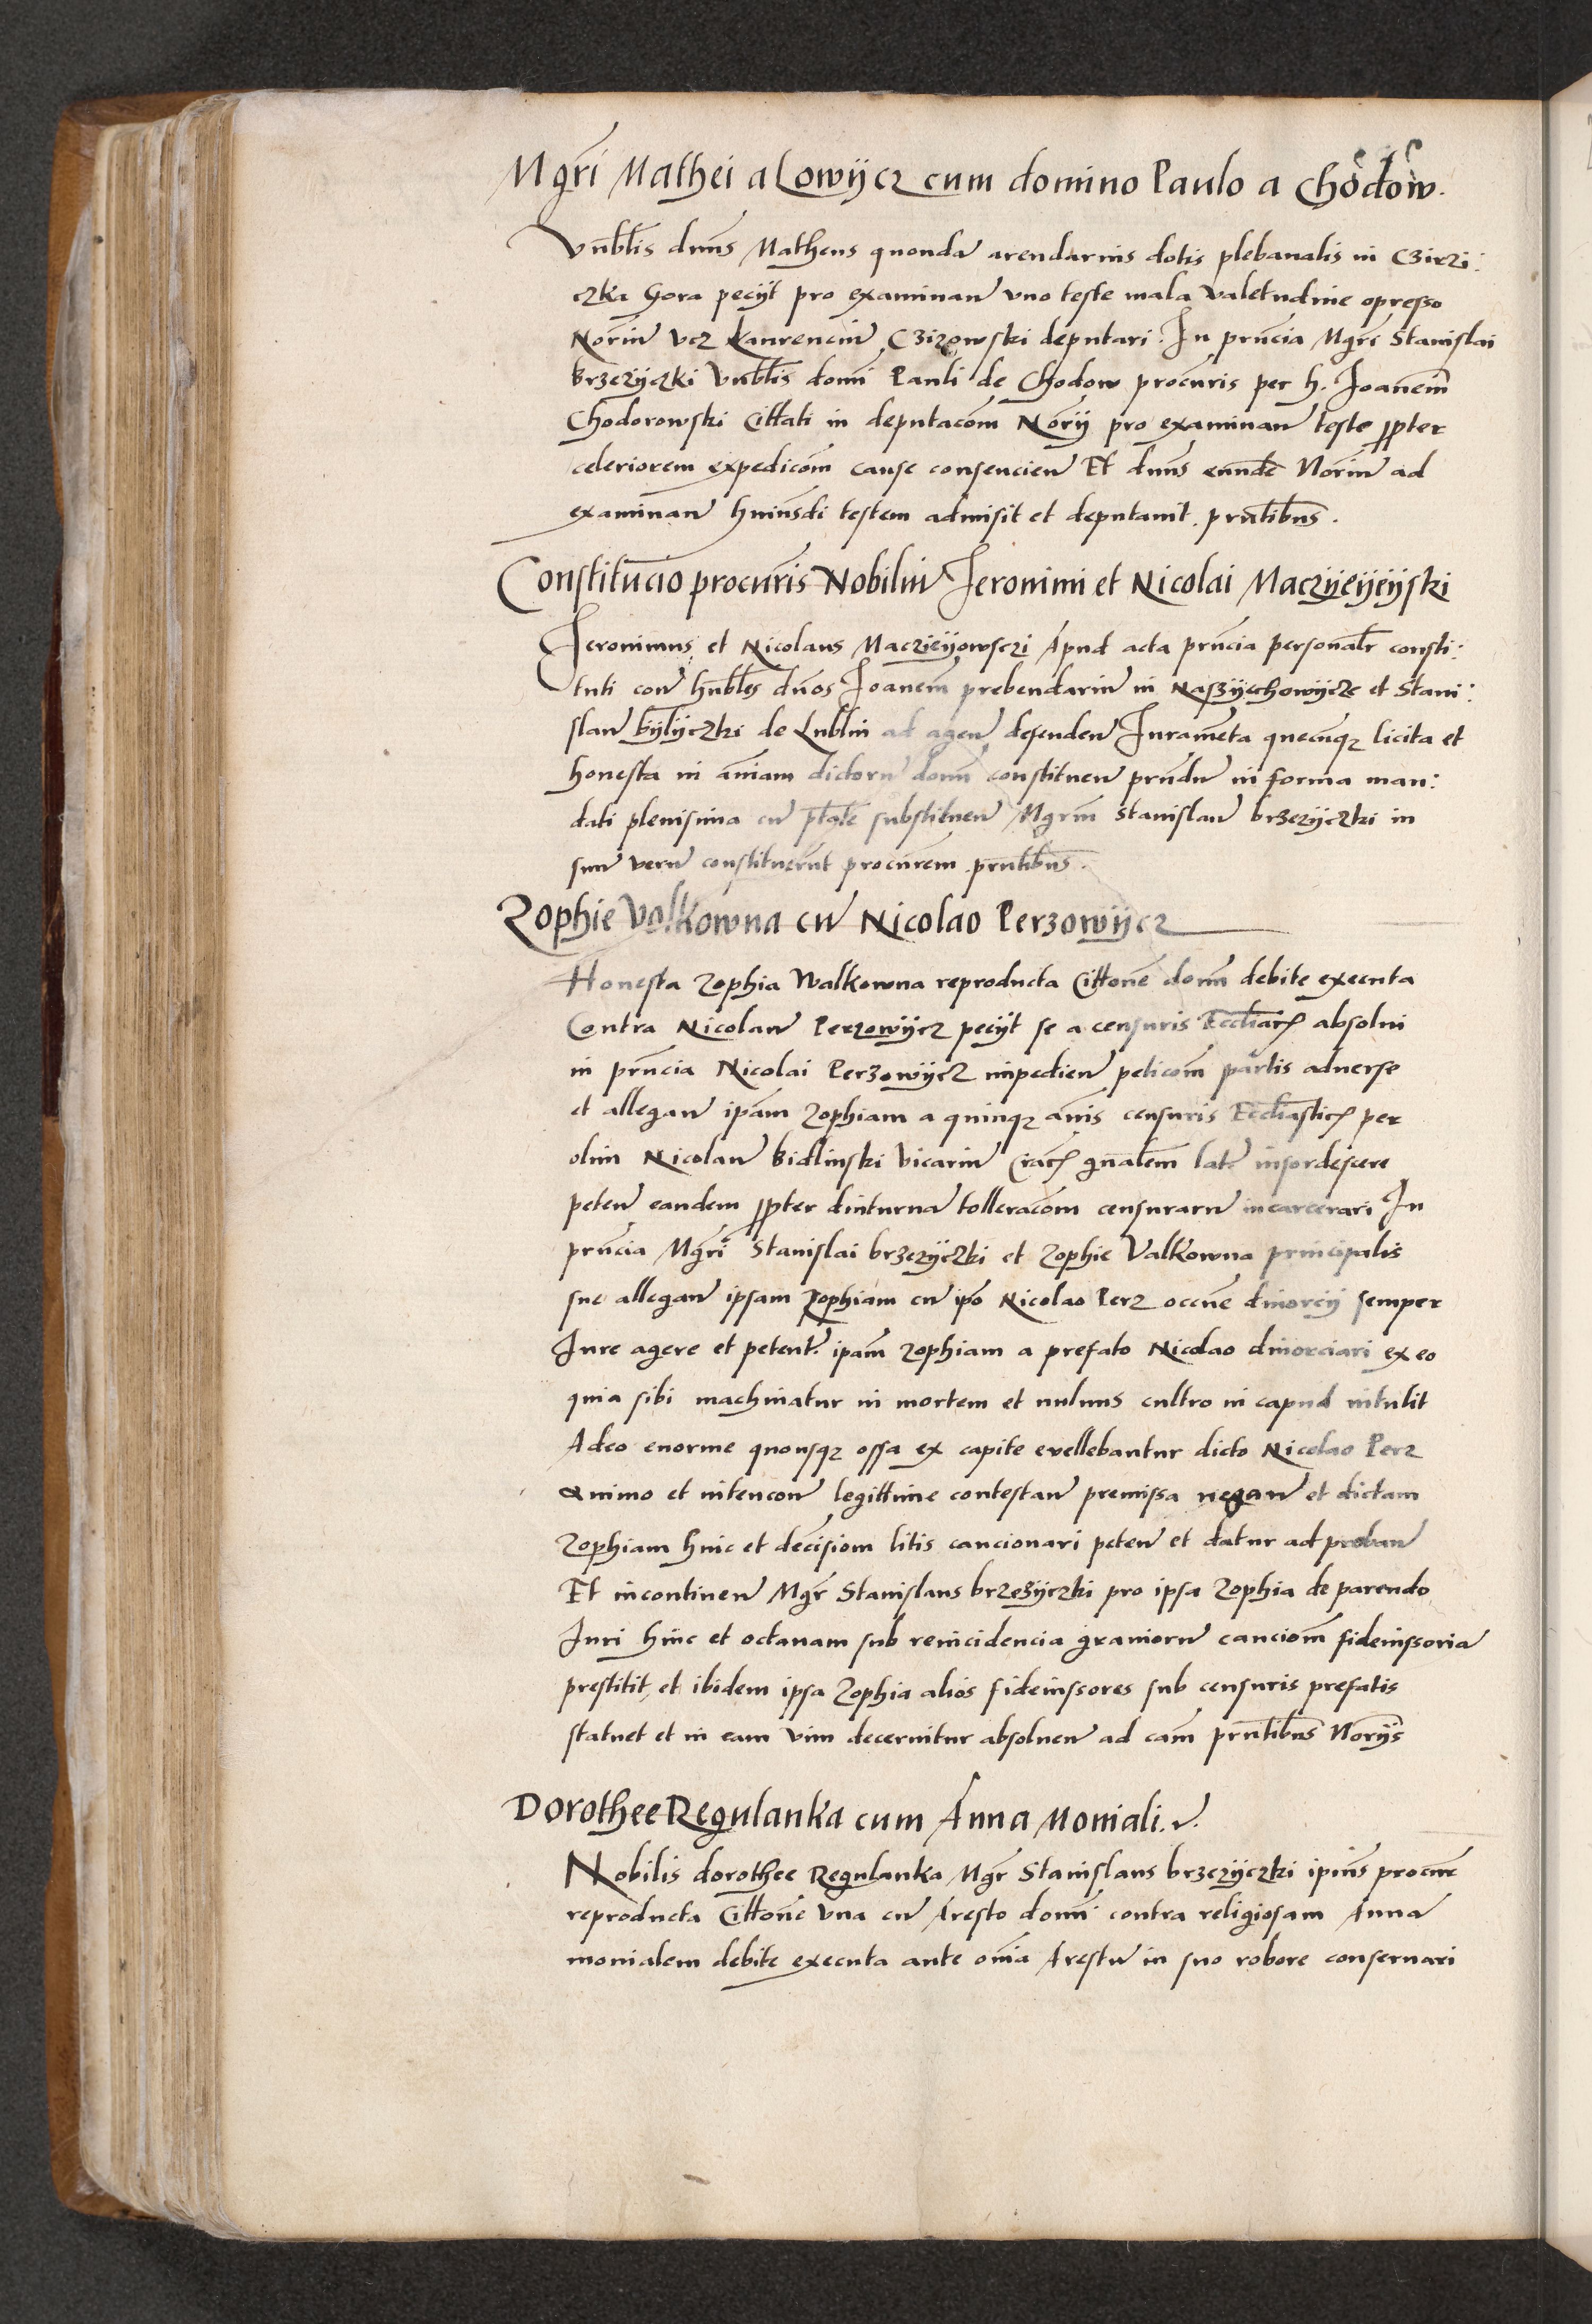 Mgri Mathei a Lowijcz cum domino Paulo a Chodow.
Vnblis dnus Matheus quonda arendarius dotis plebanalis in Czirzi:
czka Gora pecijt pro examinan vno teste mala valetudine opresso
Noriu vcz Laurenciu Czizowski deputari. In pruncia Mgri Stanislai
brzezijczki Vnblis domi Pauli de Chodow procuris per h. Joanem
Chodorowski Cittati in deputacom Norij pro examinan teste propter
celeriorem expedicom cause consencien Et dnus eunde Noriu ad
examinan huiusdi testem admisit et deputauit. prntibus.
Constitucio procuris Nobiliu Jeronimi et Nicolai Maczijeijeijski
Jeronimus et Nicolaus Maczieijowsczi Apud acta pruncia personalr consti:
tuti con hnbles dnos Joanem prebendariu in Naszijechowijcze et Stani:
slau bijlijczki de Lublin ad agen defenden Jurameta quecunqz licita et
honesta in aniam dictoru domi constituen prndu in forma man:
dati plenisima cu ptate substituen Mgrm Stanislau brzezijczki in
suu veru constituerunt procurem prntibus.
Zophie Valkowna cu Nicolao Perzowijcz
Honesta Zophia Walkowna reproducta Cittone domi debite executa
Contra Nicolau Perzowijcz pecijt se a censuris Eccliarz absolui
in pruncia Nicolai Perzowijcz inpedien peticom partis aduerse
et allegan ipam Zophiam a quinqz anis censuris Eccliasticz per
olim Nicolau bidlinski vicariu Cracz gnalem lat. insordescere
peten eandem propter diuturna tolleracom censuraru incarcerari In
pruncia Mgri Stanislai brzezijczki et Zophie Valkowna principalis
sue allegan ipsam Zophiam cu ipo Nicolao Perz occne diuorcij semper
Jure agere et petent. ipam Zophiam a prefato Nicolao diuorciari ex eo
quia sibi machinatur in mortem et uulnus cultro in capud intulit
Adeo enorme quousqz ossa ex capite euellebantur dicto Nicolao Perz
Animo et intencon legittime contestan premissa negan et dictam
Zophiam hinc et decisiom litis caucionari peten et datur ad proban
Et incontinen Mgr Stanislaus brzezijczki pro ipsa Zophia de parendo
Juri hinc et octauam sub reincidencia grauioru cauciom fideiussoria
prestitit, et ibidem ipsa Zophia alios fideiussores sub censuris prefatis
statuet et in eam vim decernitur absoluen ad cam prntibus Norijs
Dorothee Regulanka cum Anna Moniali.
Nobilis dorothee Regulanka Mgr Stanislaus brzezijczki ipius procur
reproducta Cittone vna cu Aresto domi contra religiosam Anna
monialem debite executa ante omia Arestu in suo robore conseruari